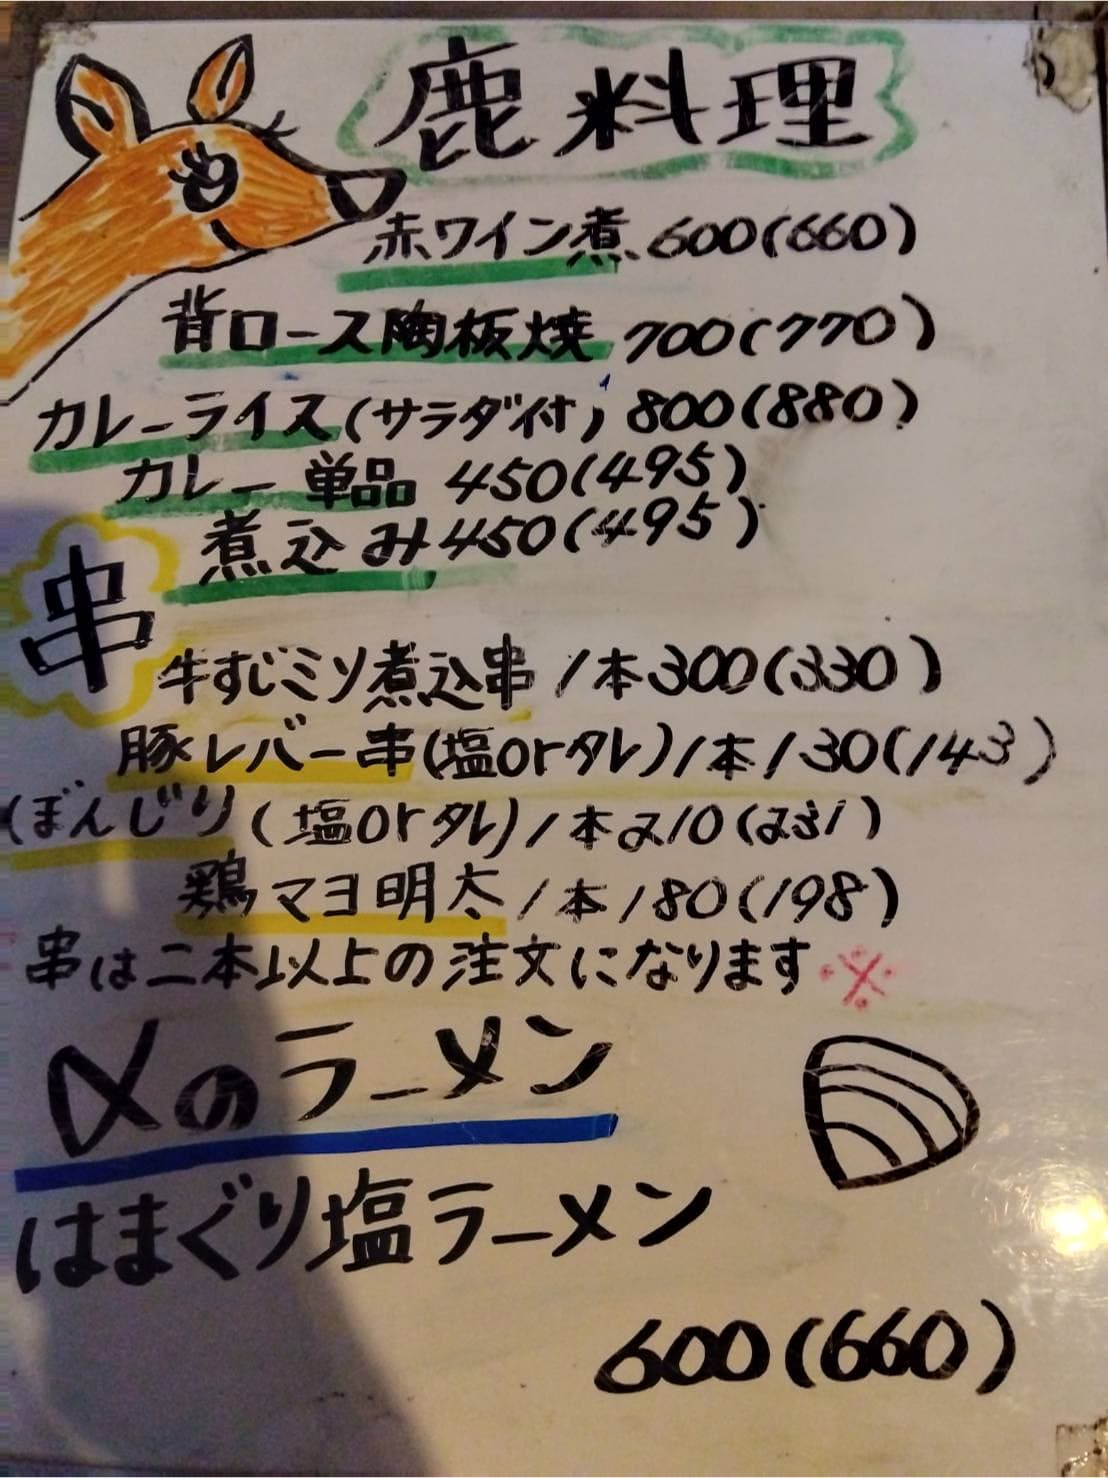 鹿料理
赤ワイン煮 600(660)
背ロース陶板焼 700(770)
カレーライス(サラダ付) 800(880)
カレー単品 450(495)
煮込み 450(495)
串
牛すじミソ煮込串 1本300(330)
豚レバー串(塩orタレ)1本130(143)
ぼんじり(塩orタレ)1本210(231)
鶏マヨ明太 1本180(198)
串は二本以上の注文になります※
〆のラーメン
はまぐり塩ラーメン
600(660)